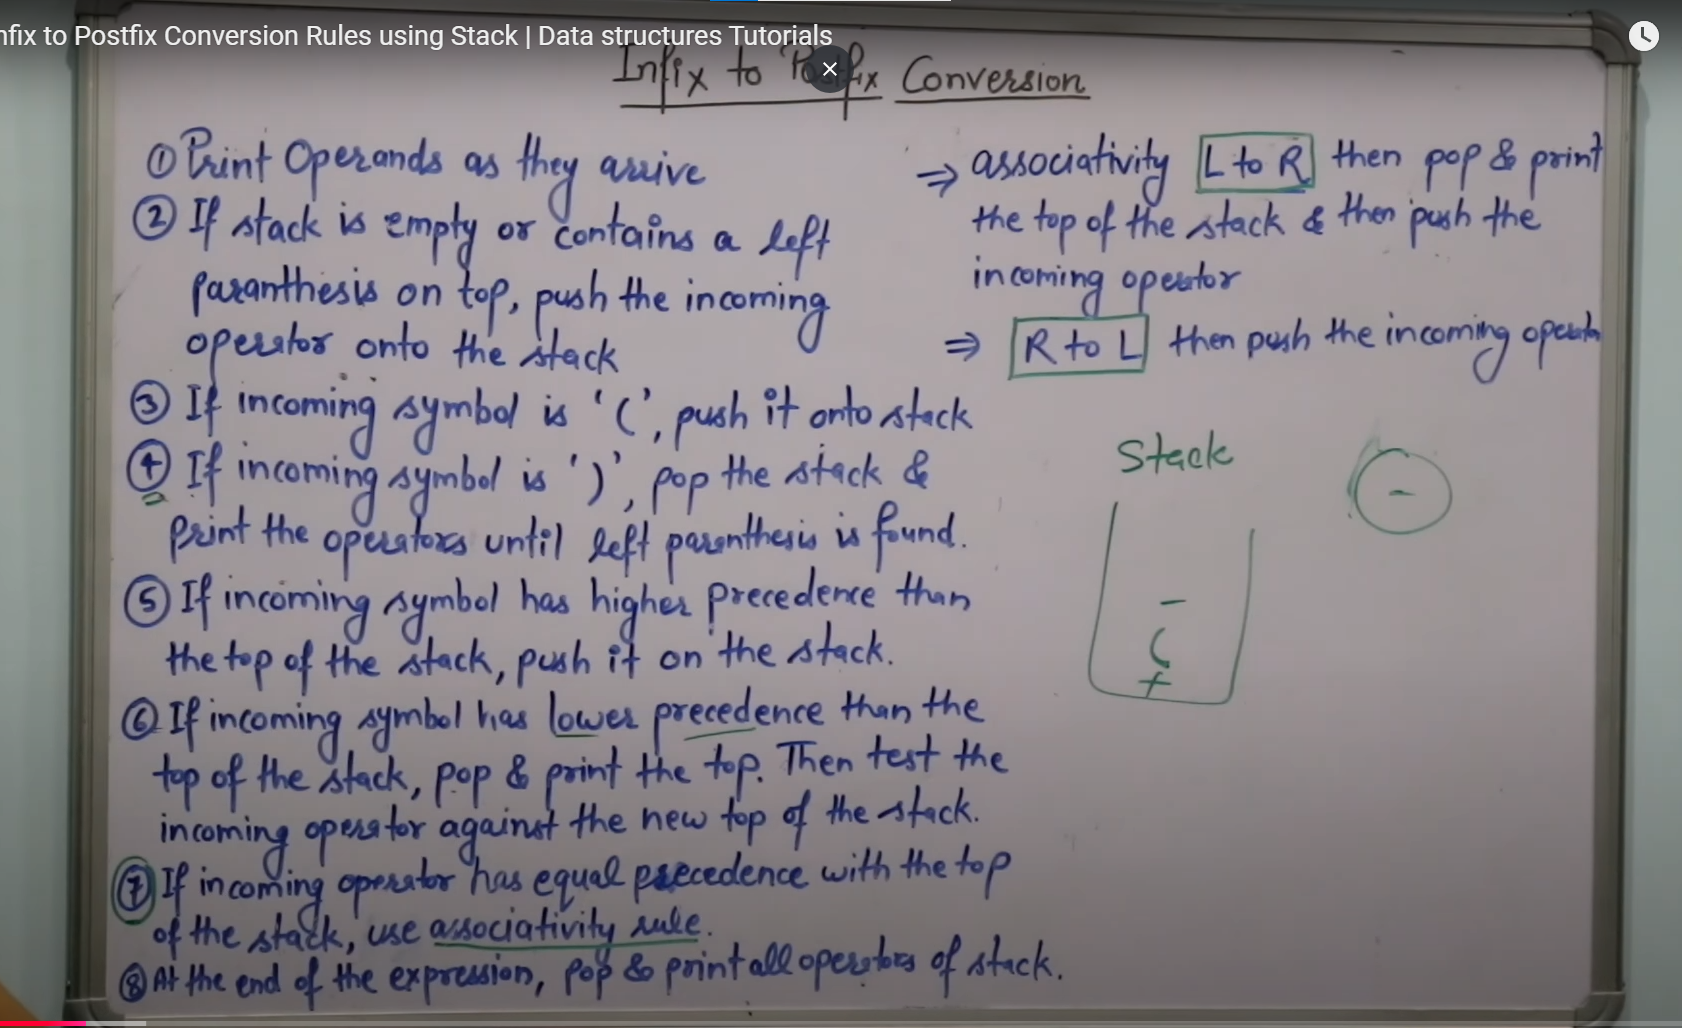 nfix to Postfix Conversion Rules using Stack | Data structures Tutorials
Infix to Postfix Conversion
① Print Operands as they arrive
② If stack is empty or contains a left
paranthesis on top, push the incoming
operator onto the stack
③ If incoming symbol is '(', push it onto stack
④ If incoming symbol is ')', pop the stack &
print the operators until left paranthesis is found.
⑤ If incoming symbol has higher precedence than
the top of the stack, push it on the stack.
⑥ If incoming symbol has lower precedence than the
top of the stack, pop & print the top. Then test the
incoming operator against the new top of the stack.
⑦ If incoming operator has equal precedence with the top
of the stack, use associativity rule.
⑧ At the end of the expression, pop & print all operators of stack.
⇒ associativity L to R then pop & print
the top of the stack & then push the
incoming operator
⇒ R to L then push the incoming operator
Stack
-
-
(
+